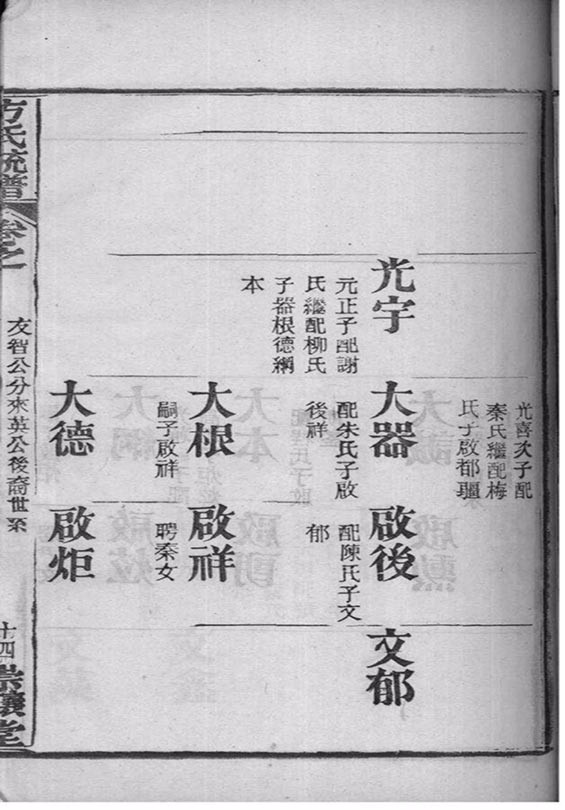 光喜次子配
秦氏繼配梅
氏子啟都疆
光宇
元正子配謝
氏繼配柳氏
子器根德綱
本
大器
配朱氏子啟
後祥
啟後
配陳氏子文
郁
文郁
大根
嗣子啟祥
啟祥
聘秦女
大德
啟炬
方氏統譜
卷之一
友智公分來英公後裔世系
十四
崇讓堂